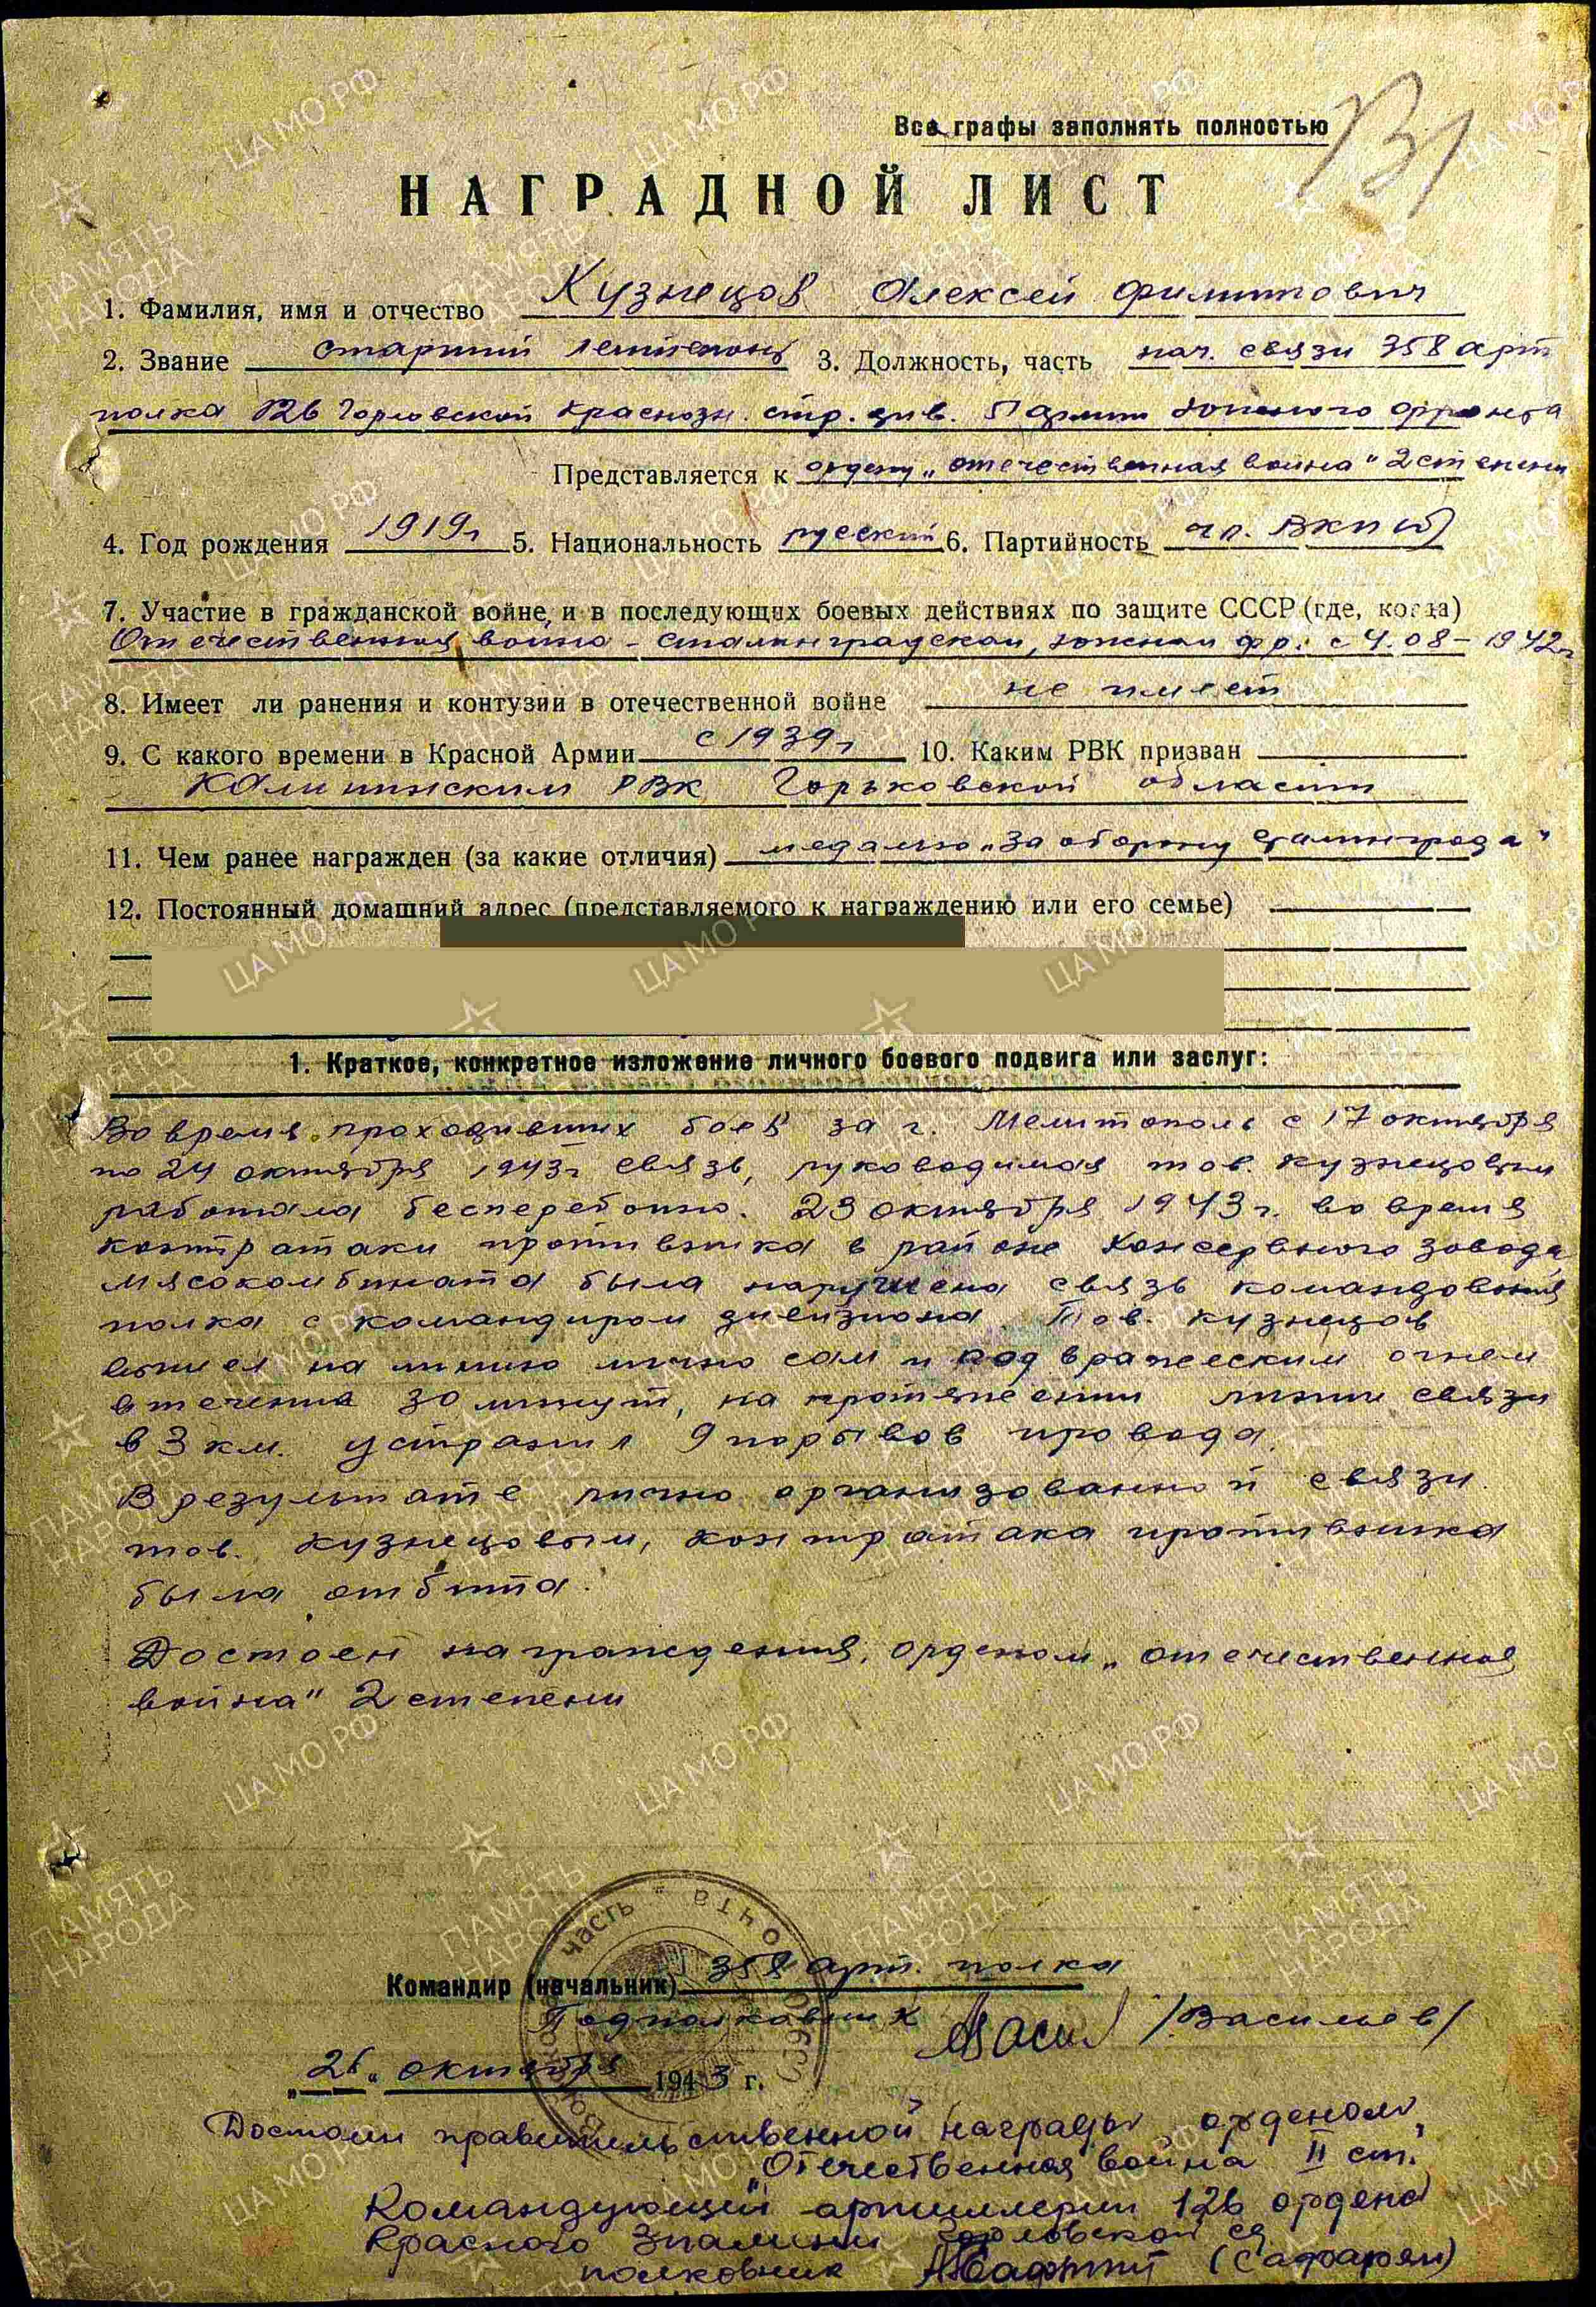 Все графы заполнять полностью
НАГРАДНОЙ ЛИСТ
1. Фамилия, имя и отчество Кузнецов Алексей Филиппович
2. Звание старший лейтенант 3. Должность, часть нач. связи 358 арт
полка 126 Горловской Краснозн. стр. див. 51 армии Южного фронта
Представляется к ордену „отечественная война" 2 степени
4. Год рождения 1919г 5. Национальность русский 6. Партийность чл. ВКП(б)
7. Участие в гражданской войне, и в последующих боевых действиях по защите СССР (где, когда)
Отечественная война - сталинградском, южном фр. с 4.08-1942г
8. Имеет ли ранения и контузии в отечественной войне не имеет
9. С какого времени в Красной Армии с 1939г 10. Каким РВК призван
Калининским РВК Горьковской области
11. Чем ранее награжден (за какие отличия) медалью „За оборону Сталинграда"
12. Постоянный домашний адрес (представляемого к награждению или его семье)
1. Краткое, конкретное изложение личного боевого подвига или заслуг:
Во время проходивших боев за г. Мелитополь с 17 октября
по 24 октября 1943г связь, руководимая тов. Кузнецовым
работала бесперебойно. 23 октября 1943г. во время
контратаки противника в районе Консервного завода,
мясокомбината была нарушена связь командования
полка с командиром дивизиона. Тов. Кузнецов
вышел на линию лично сам и под вражеским огнем
в течении 30 минут, на протяжении линии связи
в 3 км. устранил 9 порывов провода.
В результате лично организованной связи
тов. Кузнецовым, контратака противника
была отбита.
Достоен награждения, орденом „отечественная
война" 2 степени
Командир (начальник) 358 арт. полка
Подполковник /Васильев/
октября 1943 г.
Достоин правительственной награды орденом
„Отечественная война II ст."
Командующий артиллерии 126 ордена
Красного Знамени Горловской сд
полковник (Сафарян)